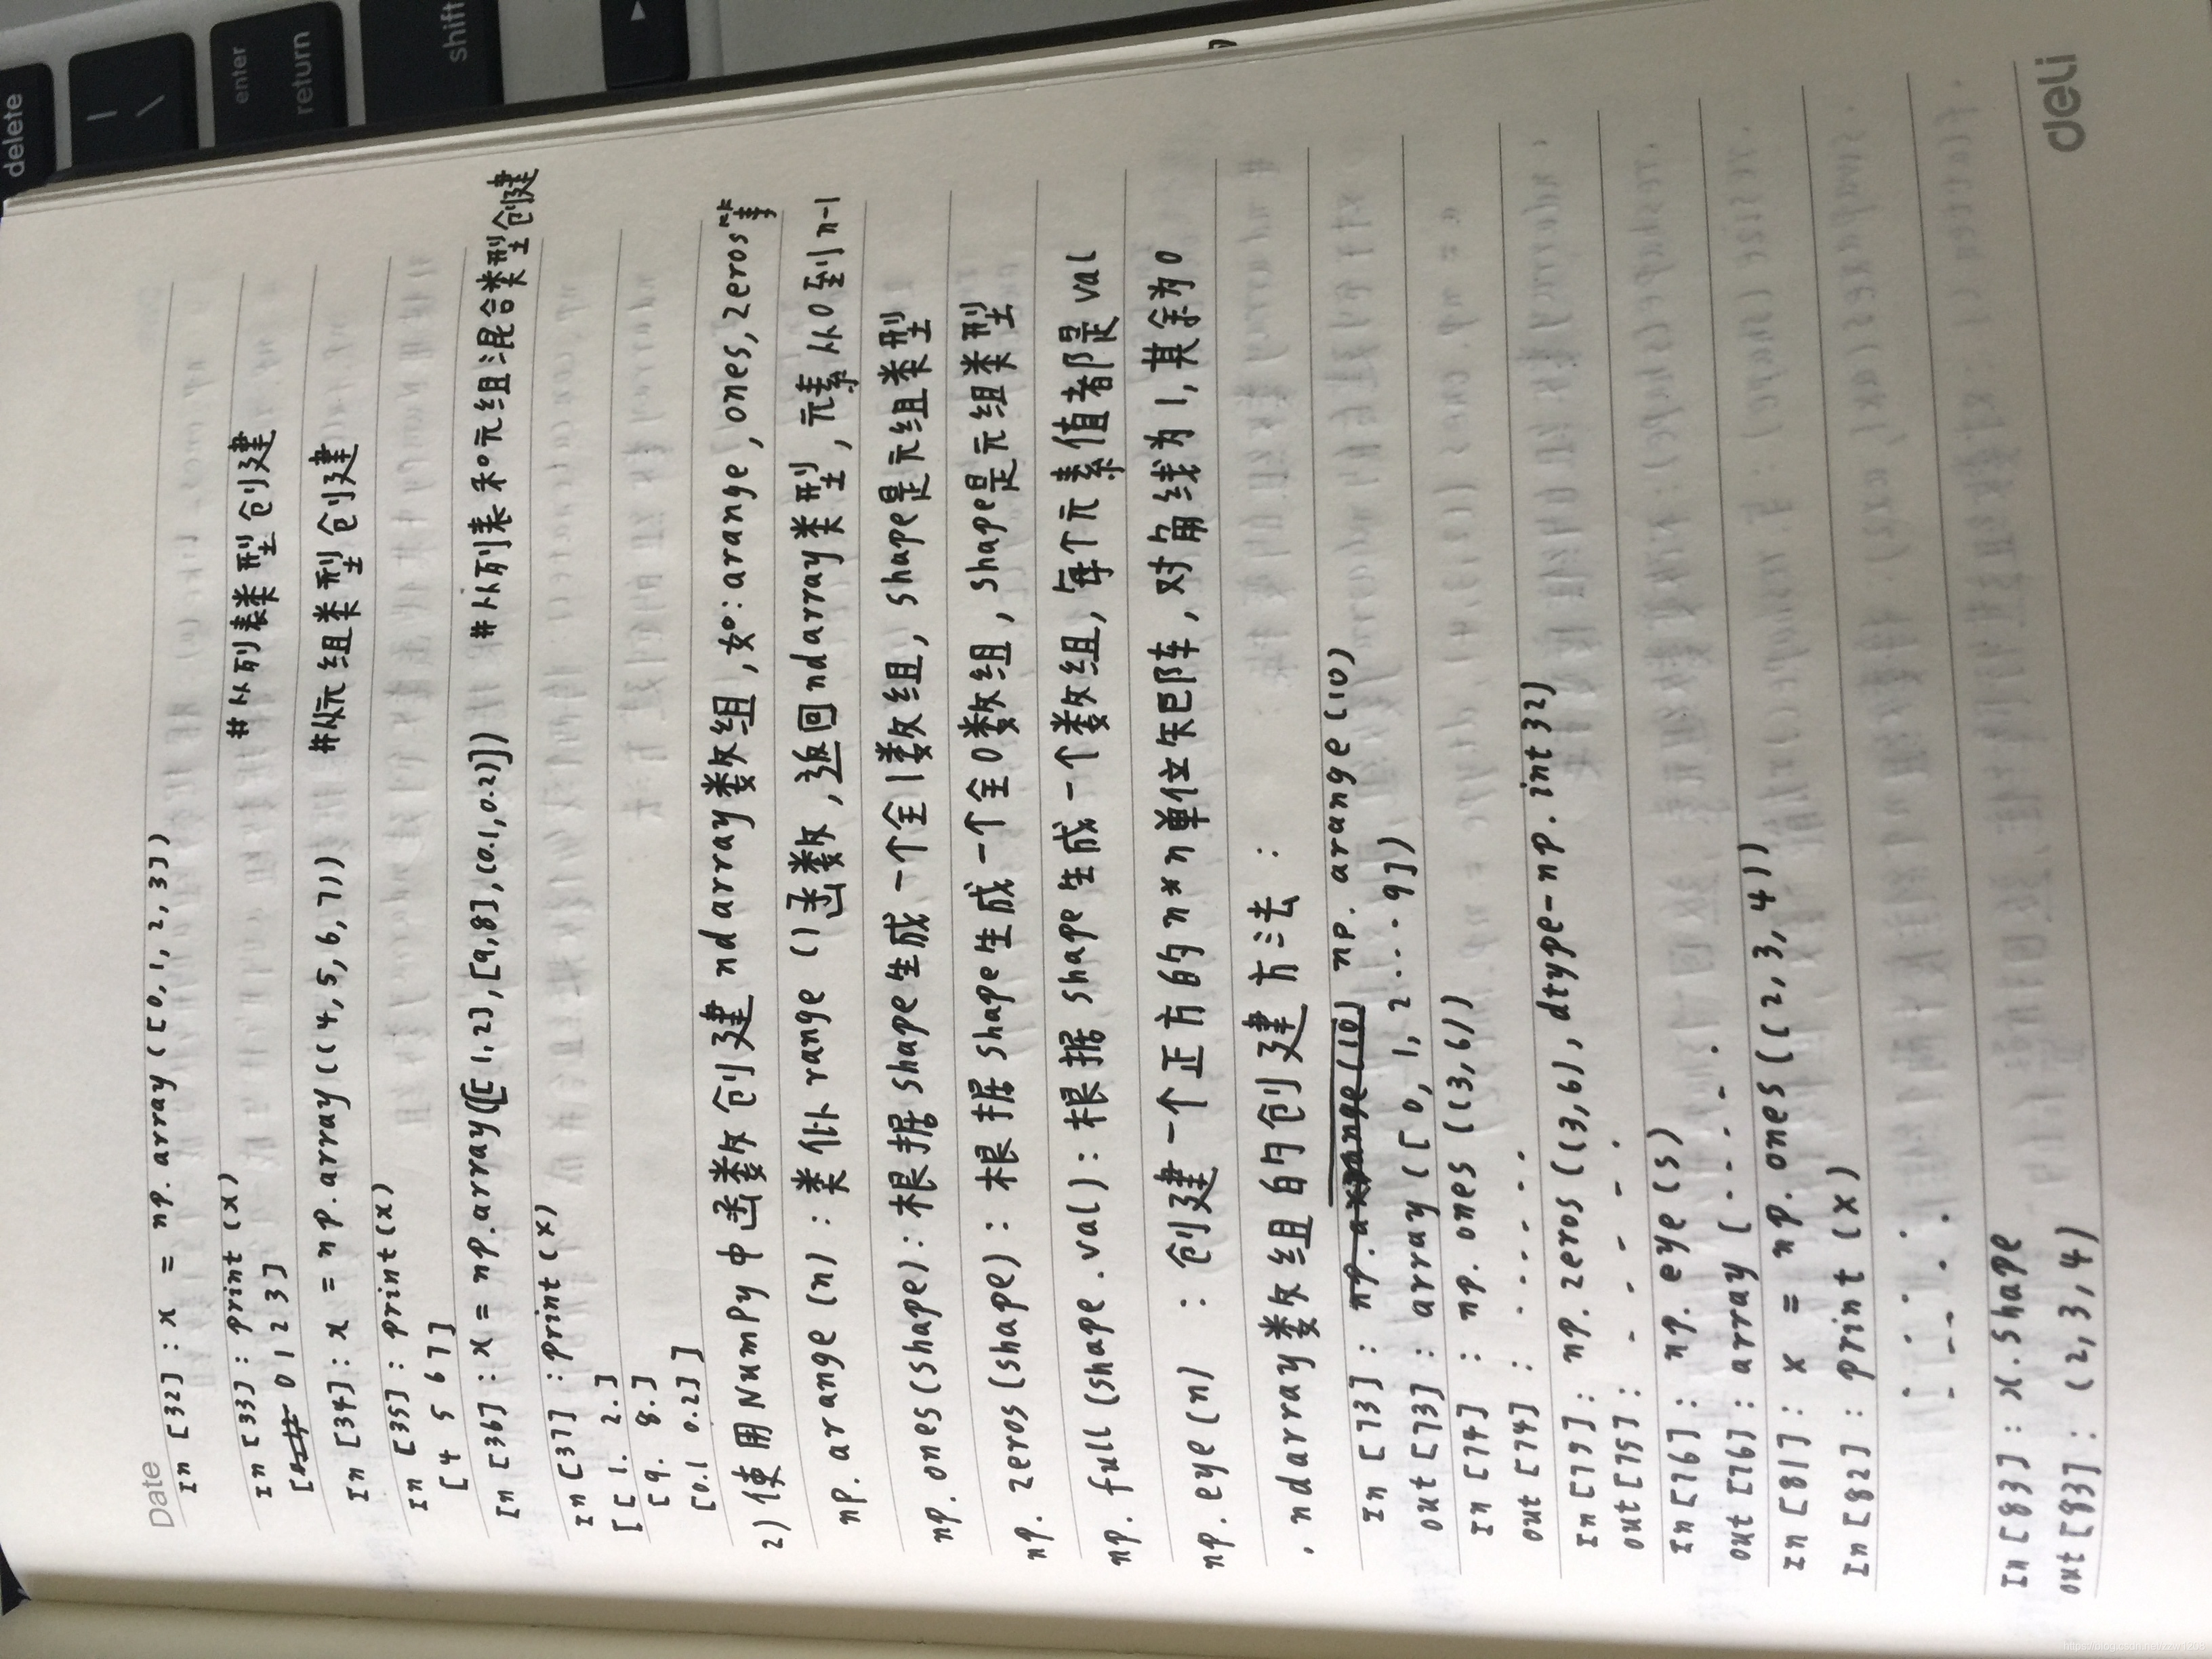 Date
In [32] : x = np. array ( [ 0, 1, 2, 3])
#从列表类型创建
In [33] : print (x)
[ 0 1 2 3 ]
#从元组类型创建
In [34] : x = np. array ( ( 4, 5, 6, 7))
In [35] : print (x)
[ 4 5 6 7 ]
#从列表和元组混合类型创建
In [36] : x = np. array([[ 1, 2], [9, 8], (0.1, 0.2)])
In [37] : print (x)
[ [ 1. 2. ]
[ 9. 8. ]
[0.1 0.2]]
2) 使用NumPy中函数创建ndarray数组,如:arange, ones, zeros等
np. arange (n) : 类似range ()函数,返回ndarray类型,元素从0到n-1
np. ones (shape): 根据shape生成一个全1数组, shape是元组类型
np. zeros (shape) : 根据shape生成一个全0数组, shape是元组类型
np. full (shape .val) : 根据shape生成一个数组,每个元素值都是val
np. eye (n) : 创建一个正方的n*n单位矩阵,对角线为1,其余为0
. ndarray数组的创建方法 :
In [73] : np. arange (10)
out [73] : array ( [ 0, 1, 2 .... 9])
In [74] : np. ones ((3, 6))
out [74] : ......
In [79] : np. zeros ((3, 6), dtype-np. int 32)
out [75] : - - - - .
In [76] : np. eye (5)
out [76] : array ( - - - - .
In [81] : x = np. ones ((2, 3, 4))
In [82] : print (x)
In [83] : x. shape
out [83] : (2, 3, 4)
deli
delete
| \
enter
return
shift